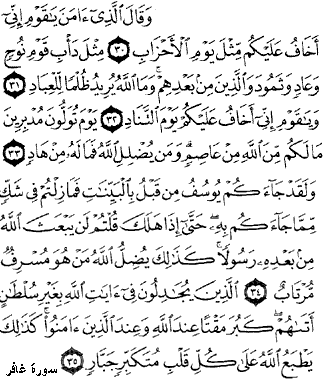 وَقَالَ ٱلَّذِىٓ ءَامَنَ يَٰقَوْمِ إِنِّىٓ
أَخَافُ عَلَيْكُم مِّثْلَ يَوْمِ ٱلْأَحْزَابِ ٣٠ مِثْلَ دَأْبِ قَوْمِ نُوحٍ
وَعَادٍ وَثَمُودَ وَٱلَّذِينَ مِنۢ بَعْدِهِمْ ۚ وَمَا ٱللَّهُ يُرِيدُ ظُلْمًا لِّلْعِبَادِ ٣١
وَيَٰقَوْمِ إِنِّىٓ أَخَافُ عَلَيْكُمْ يَوْمَ ٱلتَّنَادِ ٣٢ يَوْمَ تُوَلُّونَ مُدْبِرِينَ
مَا لَكُم مِّنَ ٱللَّهِ مِنْ عَاصِمٍ ۗ وَمَن يُضْلِلِ ٱللَّهُ فَمَا لَهُۥ مِنْ هَادٍ ٣٣
وَلَقَدْ جَآءَكُمْ يُوسُفُ مِن قَبْلُ بِٱلْبَيِّنَٰتِ فَمَا زِلْتُمْ فِى شَكٍّ
مِّمَّا جَآءَكُم بِهِۦ ۖ حَتَّىٰٓ إِذَا هَلَكَ قُلْتُمْ لَن يَبْعَثَ ٱللَّهُ
مِنۢ بَعْدِهِۦ رَسُولًا ۚ كَذَٰلِكَ يُضِلُّ ٱللَّهُ مَنْ هُوَ مُسْرِفٌ
مُّرْتَابٌ ٣٤ ٱلَّذِينَ يُجَٰدِلُونَ فِىٓ ءَايَٰتِ ٱللَّهِ بِغَيْرِ سُلْطَٰنٍ
أَتَىٰهُمْ ۖ كَبُرَ مَقْتًا عِندَ ٱللَّهِ وَعِندَ ٱلَّذِينَ ءَامَنُوا۟ ۚ كَذَٰلِكَ
يَطْبَعُ ٱللَّهُ عَلَىٰ كُلِّ قَلْبِ مُتَكَبِّرٍ جَبَّارٍ ٣٥
سورة غافر